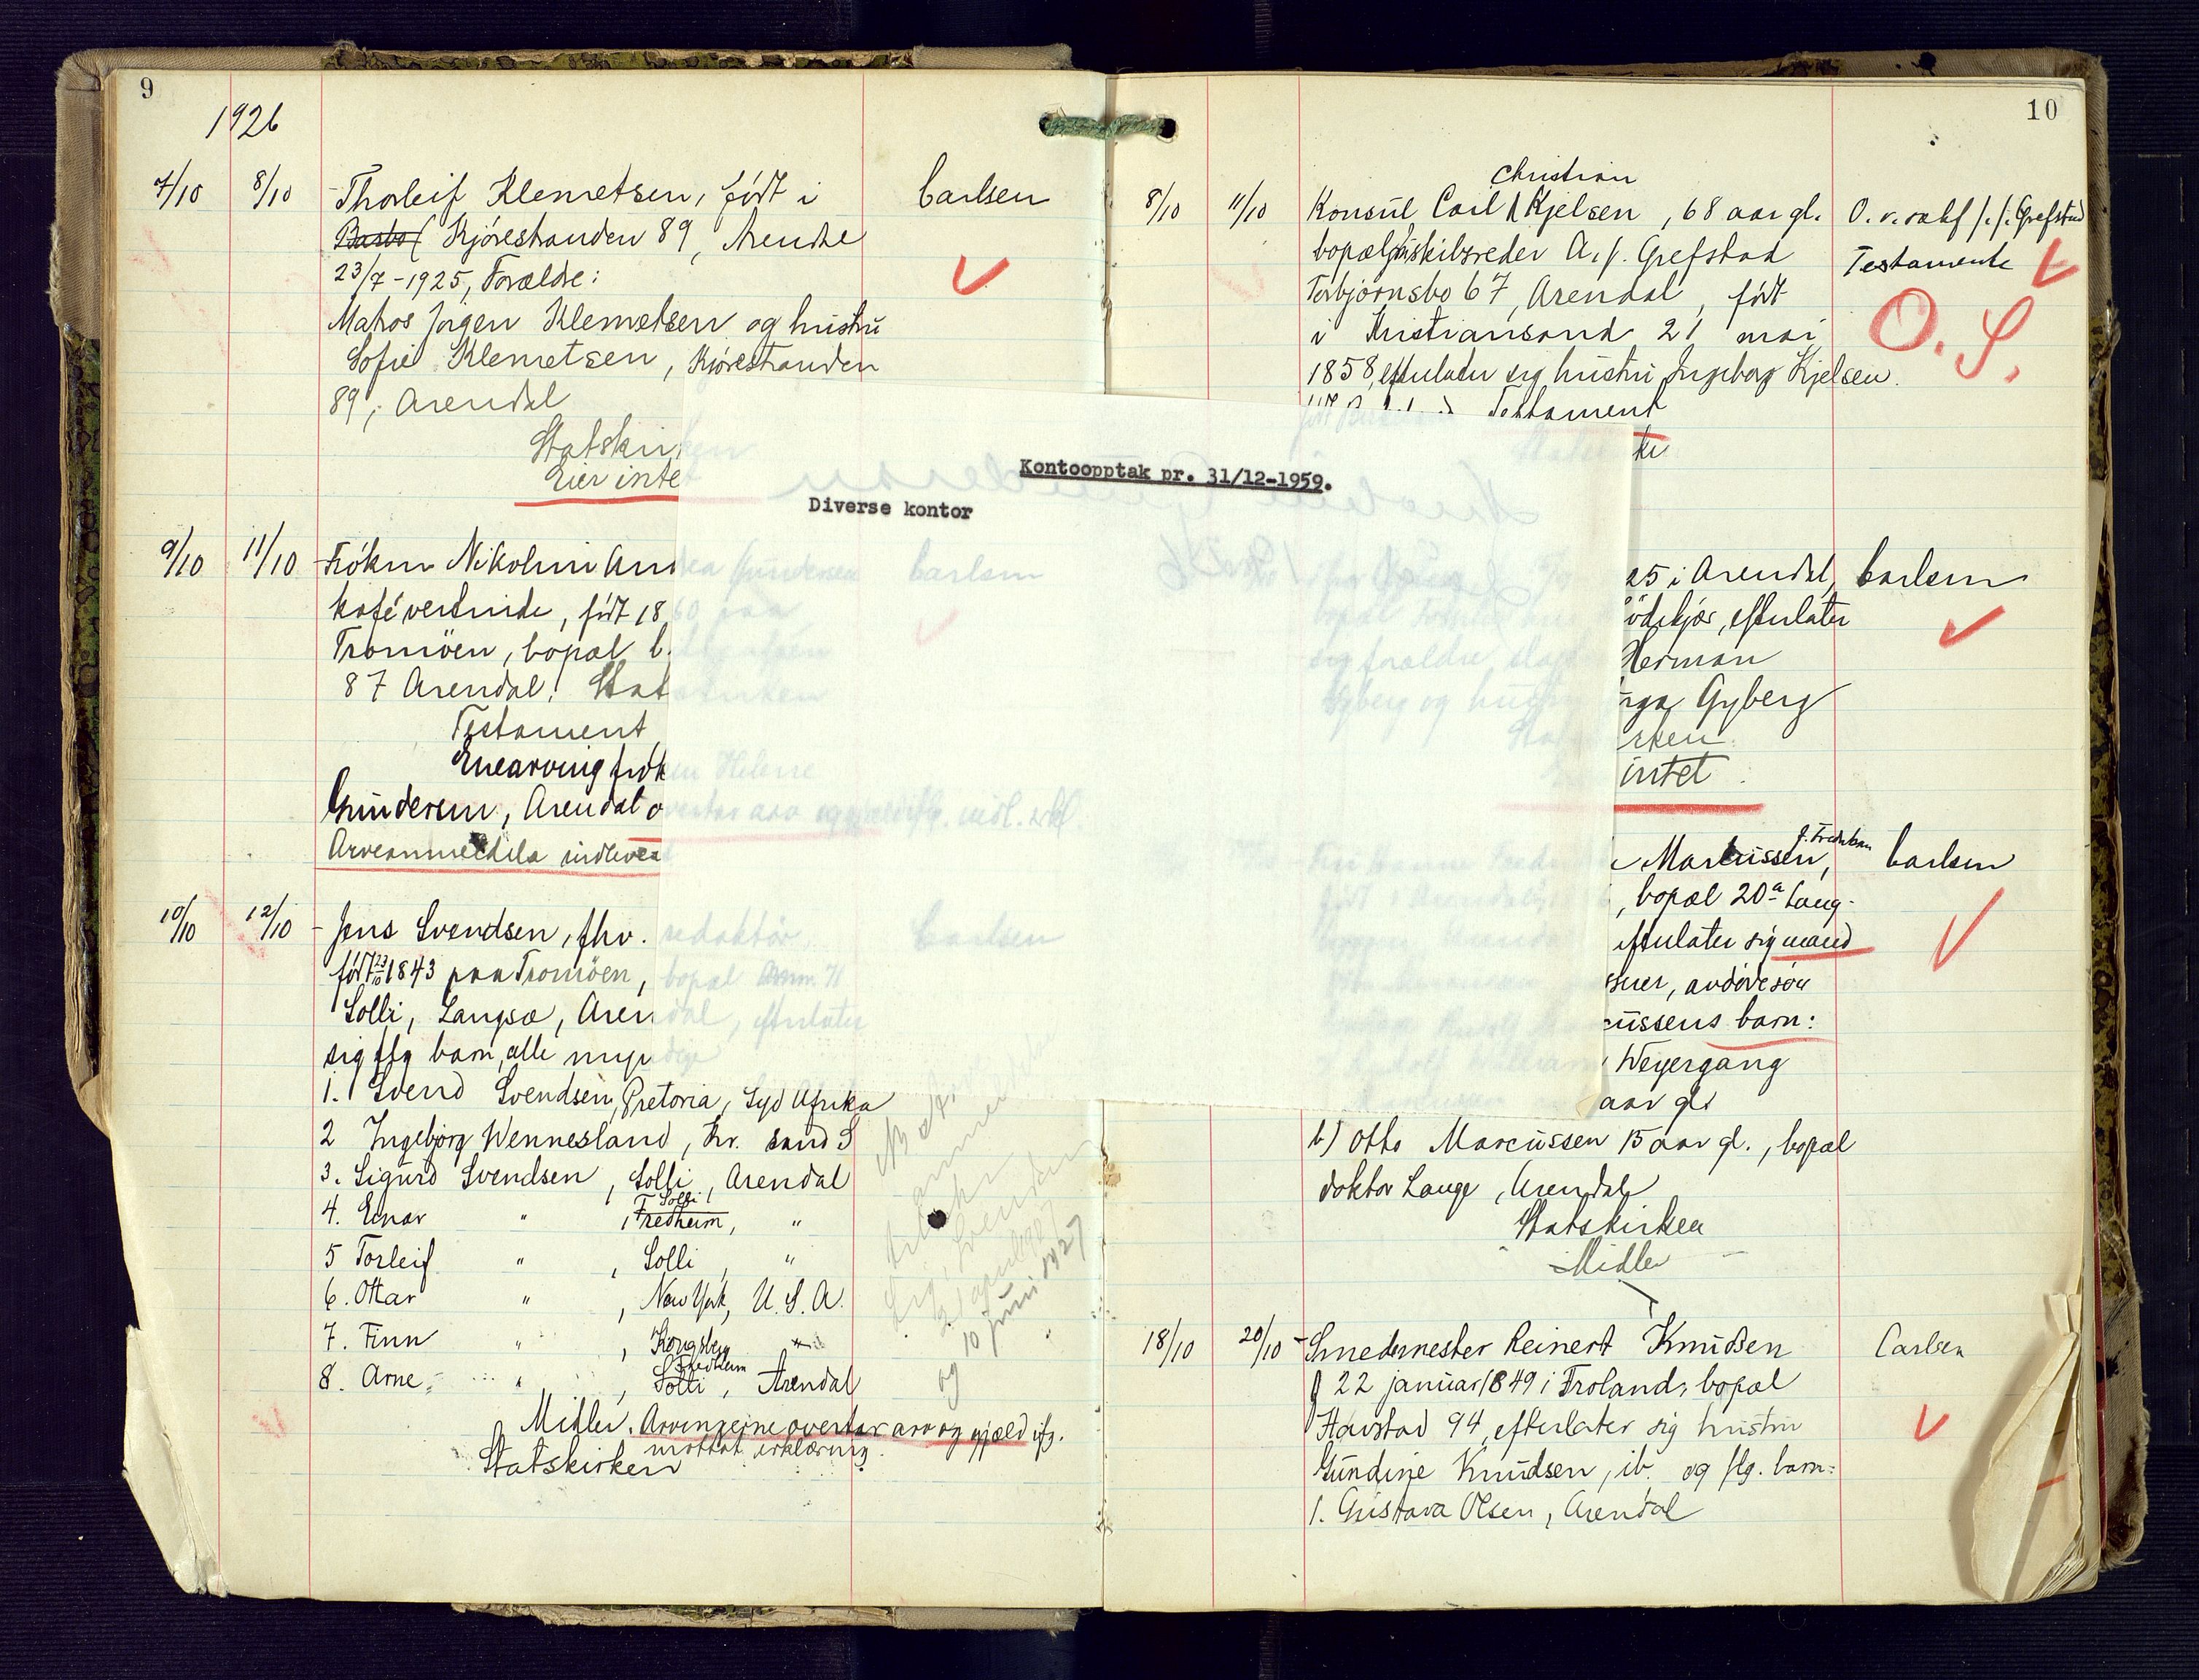 9
1926
7/10 8/10 Thorleif Klemetsen, født i Carlsen
Barbo Kjórestranden 89, Arendal
23/7-1925, Forældre:
Matros Jørgen Klemetsen og hustru
Sofie Klemetsen, Kjórestranden
89, Arendal
Statskirken
Eier intet
9/10 11/10 Frøken Nikolini Andrea Gundersen Carlsen
kafévertinde, født 1860 paa
Tromøen, bopæl
87 Arendal. Statskirken
Testament
Enearving frøken Helene
Gundersen, Arendal overtar arv og gjæld ifg. mdl. erkl.
Arveanmeldelse indlevert
10/10 12/10 Jens Svendsen, fhv. redaktør, Carlsen
født 23/10 1843 paa Tromøen, bopæl
Solli, Langsæ, Arendal, efterlater
sig flg barn, alle myndige
1. Svend Svendsen, Pretoria, Syd Afrika
2 Ingebjørg Wennesland, Kr. sand S
3. Sigurd Svendsen, Solli, Arendal
4. Einar " , Fredheim, Solli "
5 Torleif " , Solli, "
6. Ottar " , New York, U.S.A.
7. Finn " , Kongsberg
8. Arne " , Solli, Fredheim Arendal
Midler. Arvingerne overtar arv og gjæld ifg.
mottat erklæring.
Statskirken
og 10 juni 1927
Kontoopptak pr. 31/12-1959.
Diverse kontor
10
Christian
8/10 11/10 Konsul Carl Kjelsen, 68 aar gl.
bopæl skibsreder A. J. Grefstad
Torbjørnsbo 67, Arendal, født
i Kristiansand 21 mai
1858, efterlater sig hustru Ingeborg Kjelsen.
Testament
O. r. sakf J. J. Grefstad
Testamente
O. S.
25 i Arendal, Carlsen
Bödekjær, efterlater
sig forældre, Herman
Gyberg og hustru Gyberg
Statskirken
intet.
Marcussen, f. Fredriksen Carlsen
, bopæl 20a Lang-
efterlater sig mand
, avdøde søn
Marcussens barn:
Weyergang
aar gl
b) Otto Marcussen 15 aar gl., bopæl
doktor Lange, Arendal
Statskirken
Midler
18/10 20/10 Smedemester Reinert Knudsen Carlsen
f 22 januar 1849 i Froland, bopæl
Havstad 94, efterlater sig hustru
Gundine Knudsen, ib. og flg. barn:
1. Gustava Olsen, Arendal